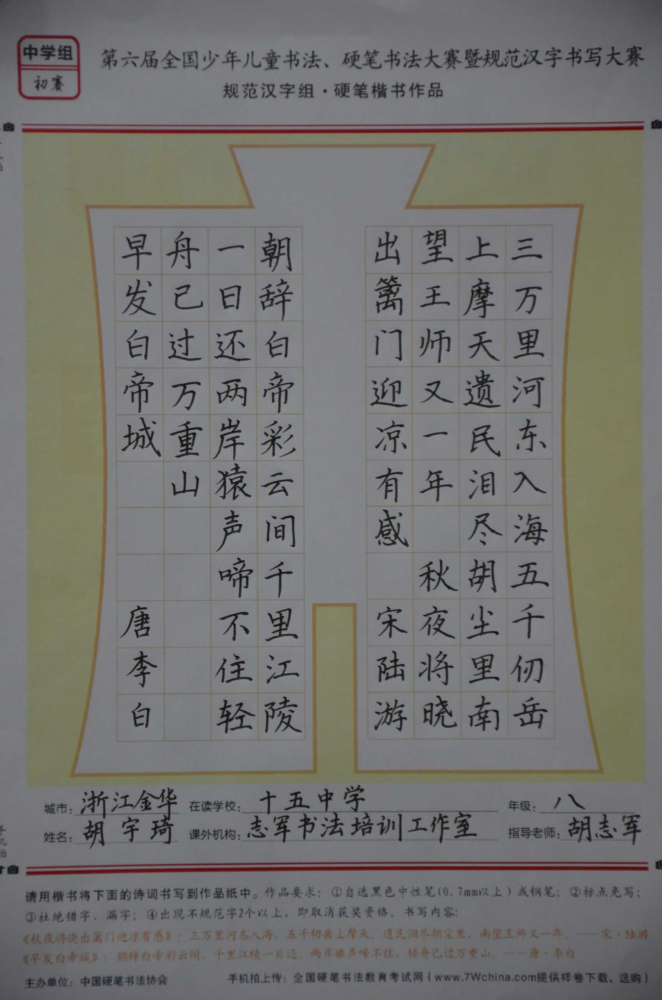 中学组
初赛
第六届全国少年儿童书法、硬笔书法大赛暨规范汉字书写大赛
规范汉字组·硬笔楷书作品
三万里河东入海五千仞岳
上摩天遗民泪尽胡尘里南
望王师又一年 秋夜将晓
出篱门迎凉有感 宋陆游
朝辞白帝彩云间千里江陵
一日还两岸猿声啼不住轻
舟已过万重山
早发白帝城 唐李白
城市：浙江金华 在读学校：十五中学 年级：八
姓名：胡宇琦 课外机构：志军书法培训工作室 指导老师：胡志军
请用楷书将下面的诗词书写到作品纸中。作品要求：①自选黑色中性笔(0.7mm以上)或钢笔；②标点免写；
③杜绝错字、漏字；④出现不规范字2个以上，即取消获奖资格。书写内容：
《秋夜将晓出篱门迎凉有感》：三万里河东入海，五千仞岳上摩天。遗民泪尽胡尘里，南望王师又一年。——宋·陆游
《早发白帝城》：朝辞白帝彩云间，千里江陵一日还。两岸猿声啼不住，轻舟已过万重山。——唐·李白
主办单位：中国硬笔书法协会 手机拍上传：全国硬笔书法教育考试网（www.7Wchina.com提供样卷下载、选购）